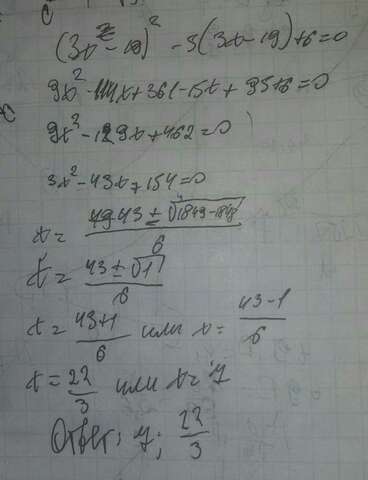 (3x² - 19)² - 5(3x - 19) + 6 = 0
9x² - 114x + 361 - 15x + 95 + 6 = 0
9x² - 129x + 462 = 0
3x² - 43x + 154 = 0
x = (43 ± √1849 - 1848) / 6
x = (43 ± √1) / 6
x = (43+1) / 6 или x = (43-1) / 6
x = 22/3 или x = 7
Ответ: 7; 22/3